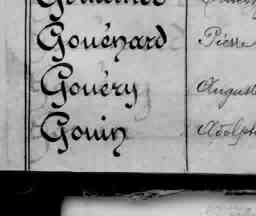 Gouénard Pierre
Gouéry Auguste
Gouin Adolphe